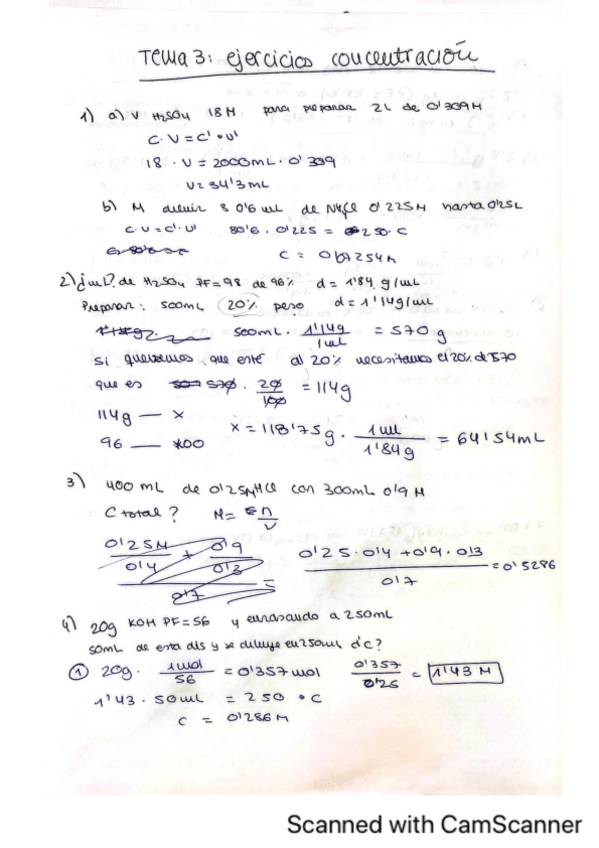 Tema 3: ejercicios concentración
1) a) V H2SO4 18M para preparar 2L de 0'309M
C·V = C'·V'
18 · V = 2000mL · 0'309
V = 34'3 mL
b) M diluir 80'6 mL de NH4Cl 0'225M hasta 0'25L
C·V = C'·V' 80'6 · 0'225 = 250 · C
C = 0'0725M
2) ¿mL? de H2SO4 PF = 98 de 96% d = 1'84 g/mL
Preparar: 500mL 20% peso d = 1'14g/mL
500mL · 1'14g / 1mL = 570 g
Si queremos que esté al 20% necesitamos el 20% de 570
que es 570 · 20/100 = 114g
114g — x
96 — 100
x = 118'75g · 1mL / 1'84g = 64'54mL
3) 400 mL de 0'25M HCl con 300mL 0'9M
C total? M = n/V
0'25M/0'4 + 0'9/0'3 / 0'7 =
0'25·0'4 + 0'9·0'3 / 0'7 = 0'5286
4) 20g KOH PF = 56 y enrasando a 250mL
50mL de esta dis y se diluye en 250mL ¿C?
1 20g · 1mol/56 = 0'357mol 0'357/0'25 = 1'43 M
1'43 · 50mL = 250 · C
C = 0'286M
Scanned with CamScanner